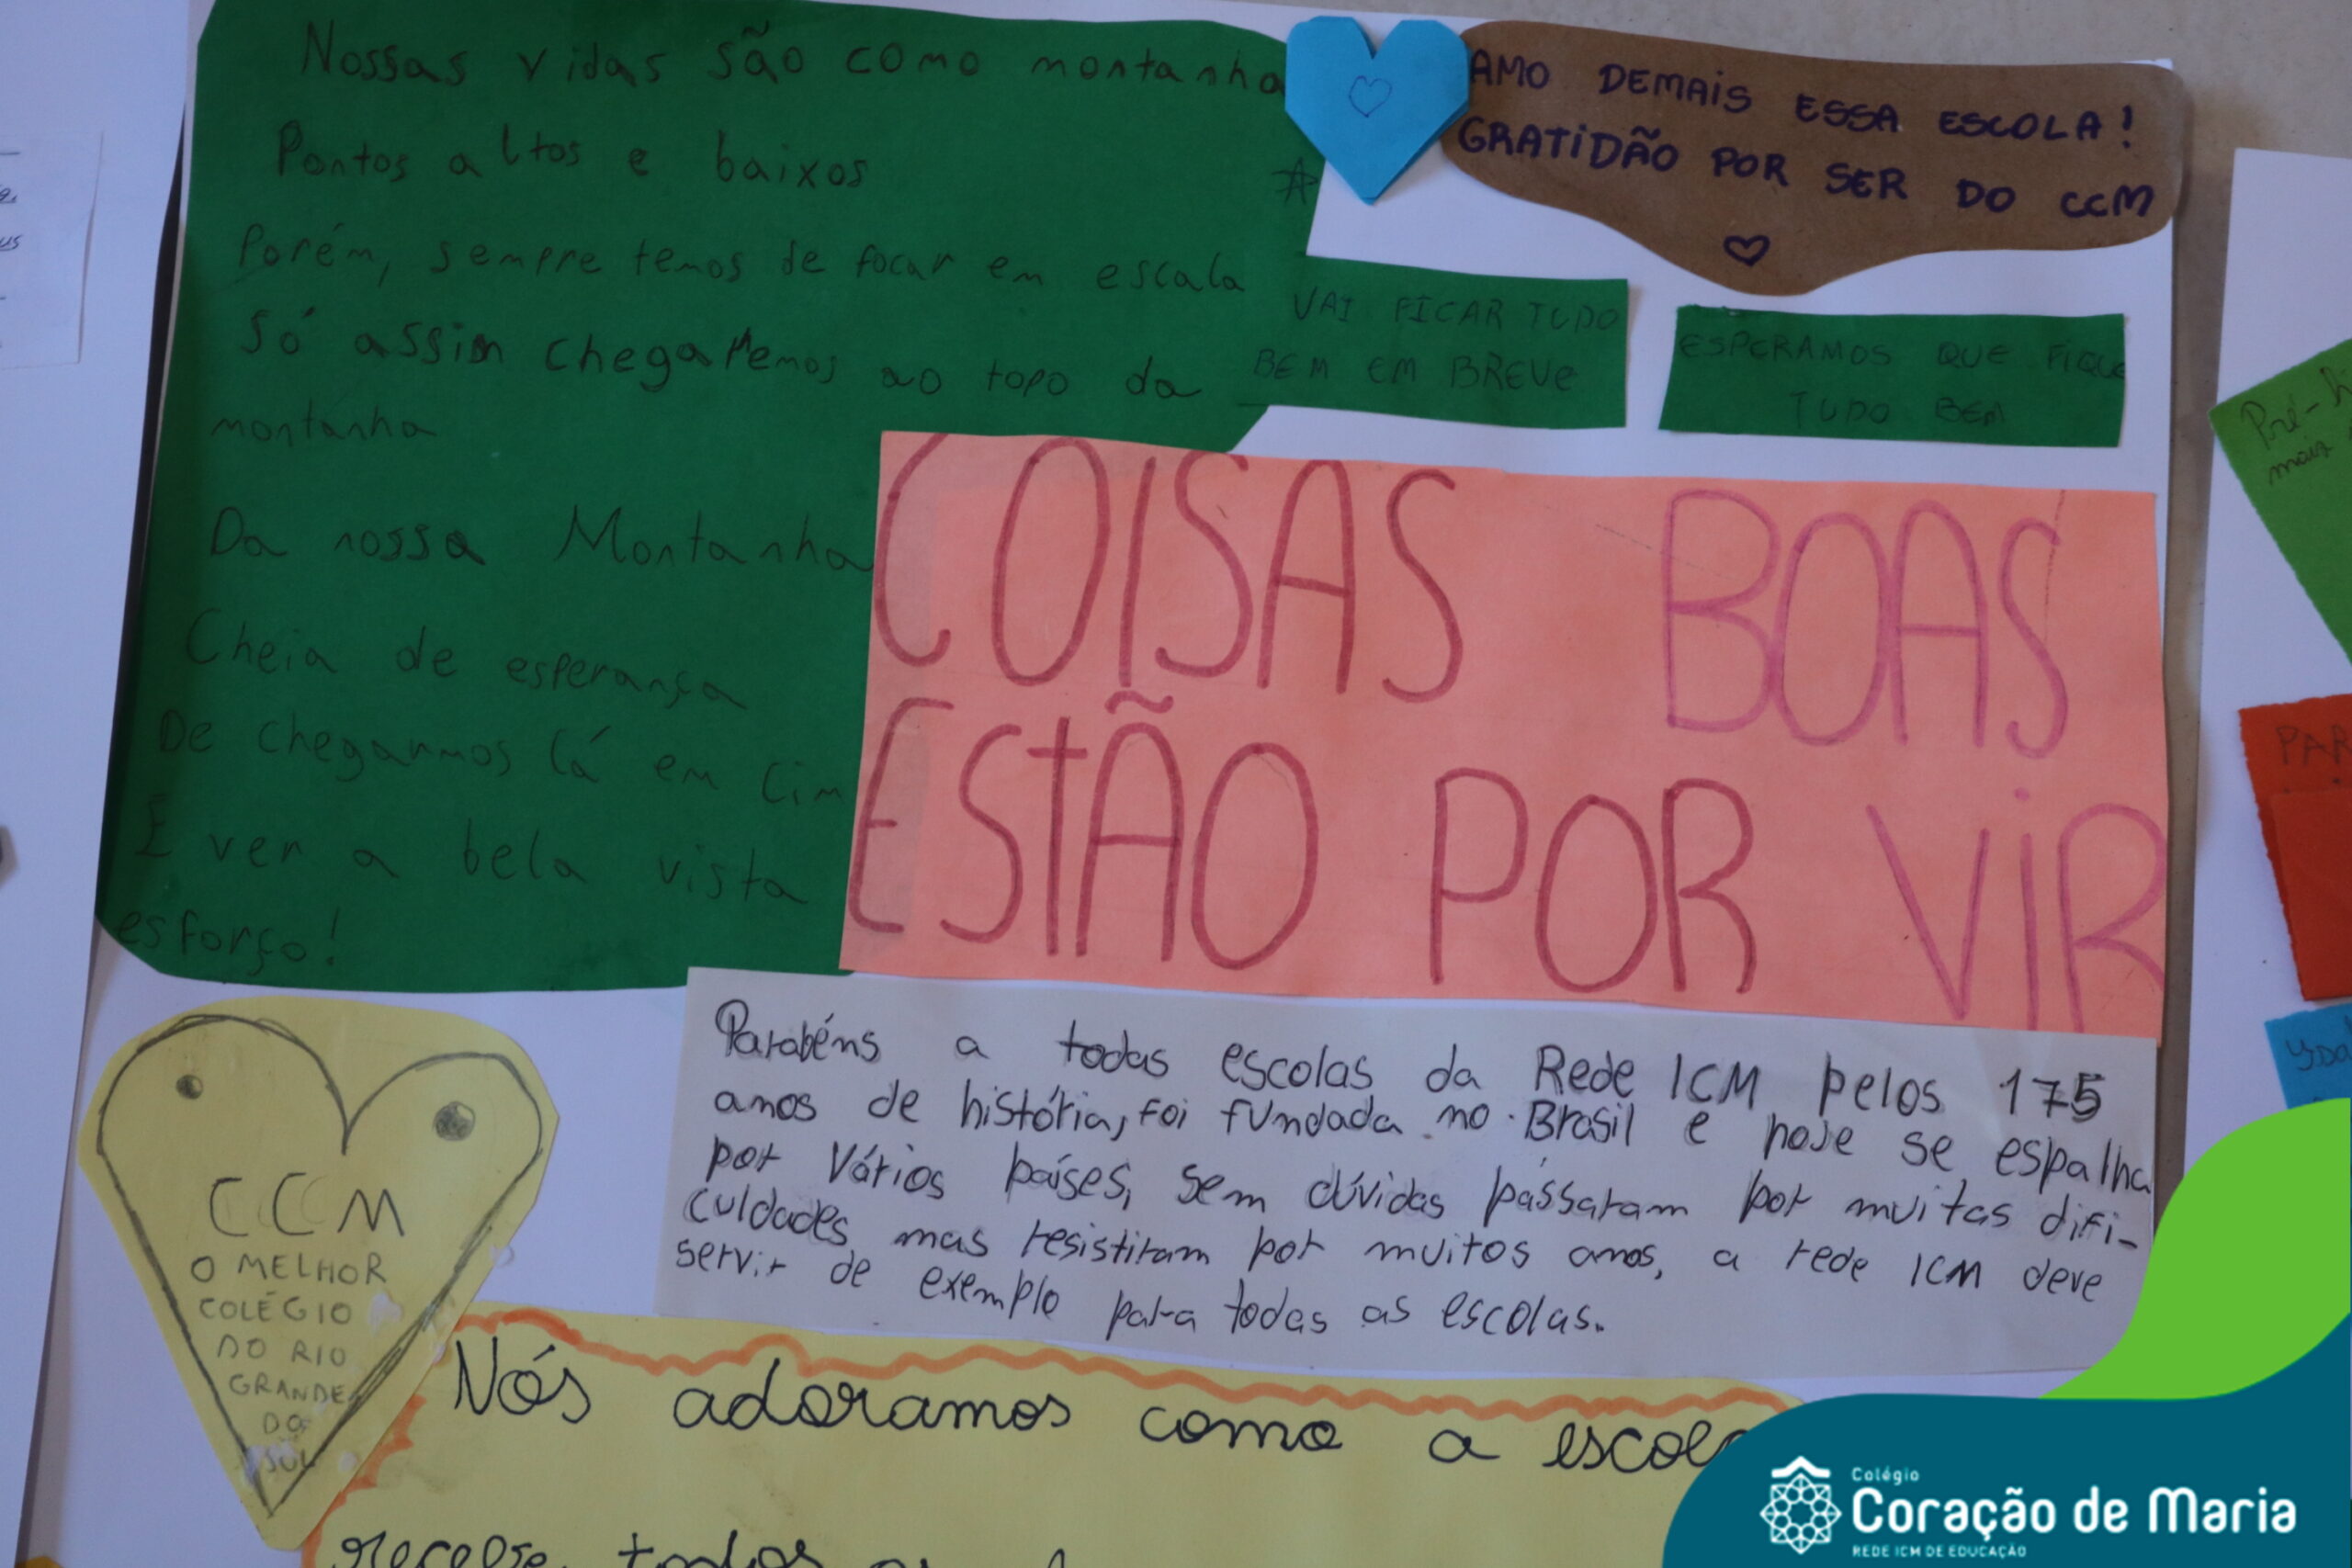 Nossas vidas são como montanha
Pontos altos e baixos
Porém, sempre temos de focar em escala
Só assim chegaremos ao topo da
montanha
Da nossa Montanha
Cheia de esperança
De chegarmos lá em cim
E ver a bela vista
esforço!
AMO DEMAIS ESSA ESCOLA!
GRATIDÃO POR SER DO CCM
VAI FICAR TUDO
BEM EM BREVE
ESPERAMOS QUE FIQUE
TUDO BEM
COISAS BOAS
ESTÃO POR VIR
Parabéns a todas escolas da Rede ICM pelos 175
anos de história, foi fundada no Brasil e hoje se espalha
por vários países, sem dúvidas passaram por muitas difi-
culdades mas resistiram por muitos anos, a rede ICM deve
servir de exemplo para todas as escolas.
CCM
O MELHOR
COLÉGIO
DO RIO
GRANDE
DO
SUL
Nós adoramos como a escola
recebe todos
Pré-
mais
PAR
Colégio
Coração de Maria
REDE ICM DE EDUCAÇÃO